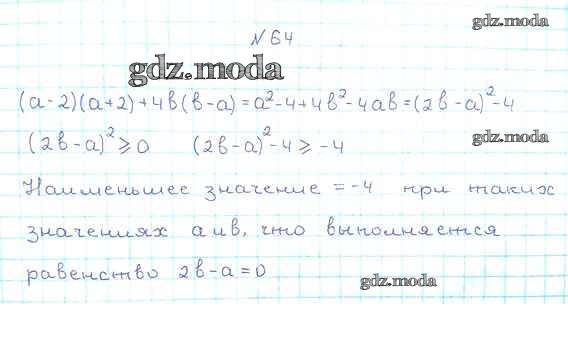 gdz.moda
№ 64
gdz.moda
(а-2)(а+2)+4в(в-а)=а²-4+4в²-4ав=(2в-а)²-4
(2в-а)²⩾0 (2в-а)²-4⩾-4
gdz.moda
Наименьшее значение =-4 при таких
значениях а и в, что выполняется
равенство 2в-а=0
gdz.moda